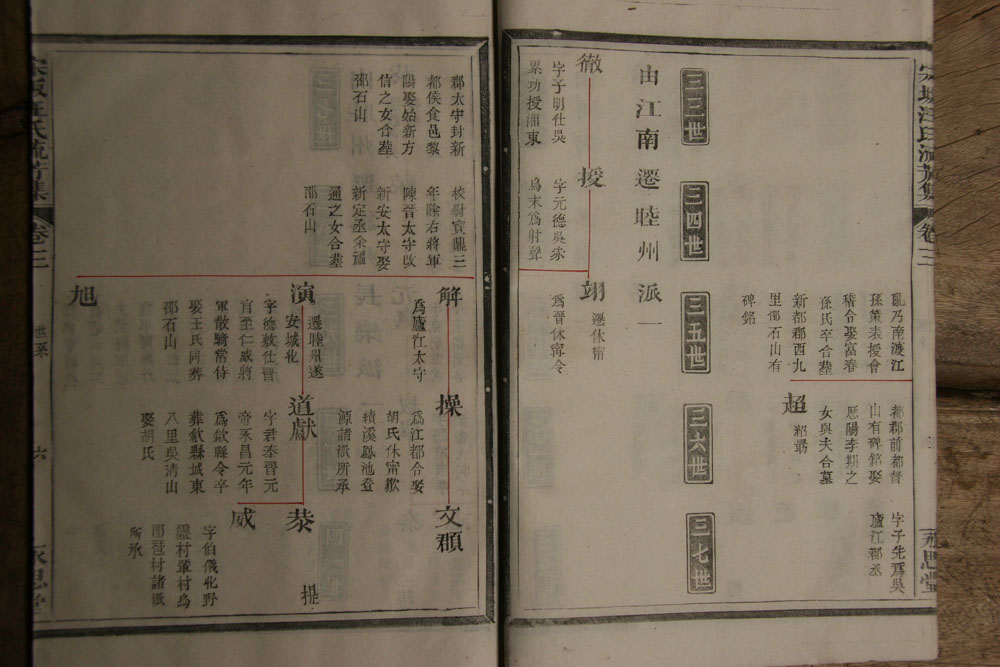 流芳集
卷三
亂乃而渡江
孫策表授會
稽合娶富春
孫氏卒合葬
新都郡西九
里邵石山有
碑銘
都郡前都督
山有碑銘娶
厯陽李期之
女與夫合墓
超
字子先爲吳
廬江郡丞
三三世
三四世
三五世
三六世
三七世
由江南遷睦州派一
徹
字子明仕吳
累功授湘東
援
字元德吳
爲末爲射聲
翊
遷休甯
爲晉休甯令
郡太守封新
都侯食邑黎
陽娶始新方
信之女合葬
邵石山
校尉寶鼎三
年除右將軍
陳晉太守改
新安太守娶
新定丞余
通之女合葬
邵石山
解
爲廬江太守
操
爲江都令娶
胡氏休甯歙
績溪鳳池登
源諸派所承
文頵
演
遷睦州遂
安城北
字德敦仕晉
官至仁威將
軍散騎常侍
娶王氏同葬
邵石山
道獻
字君泰晉元
帝永昌元年
爲歙縣令卒
葬歙縣城東
八里吳清山
娶胡氏
恭
威
字伯儀北野
琶村諸派
所承
旭
世系
六
卷三
永思堂